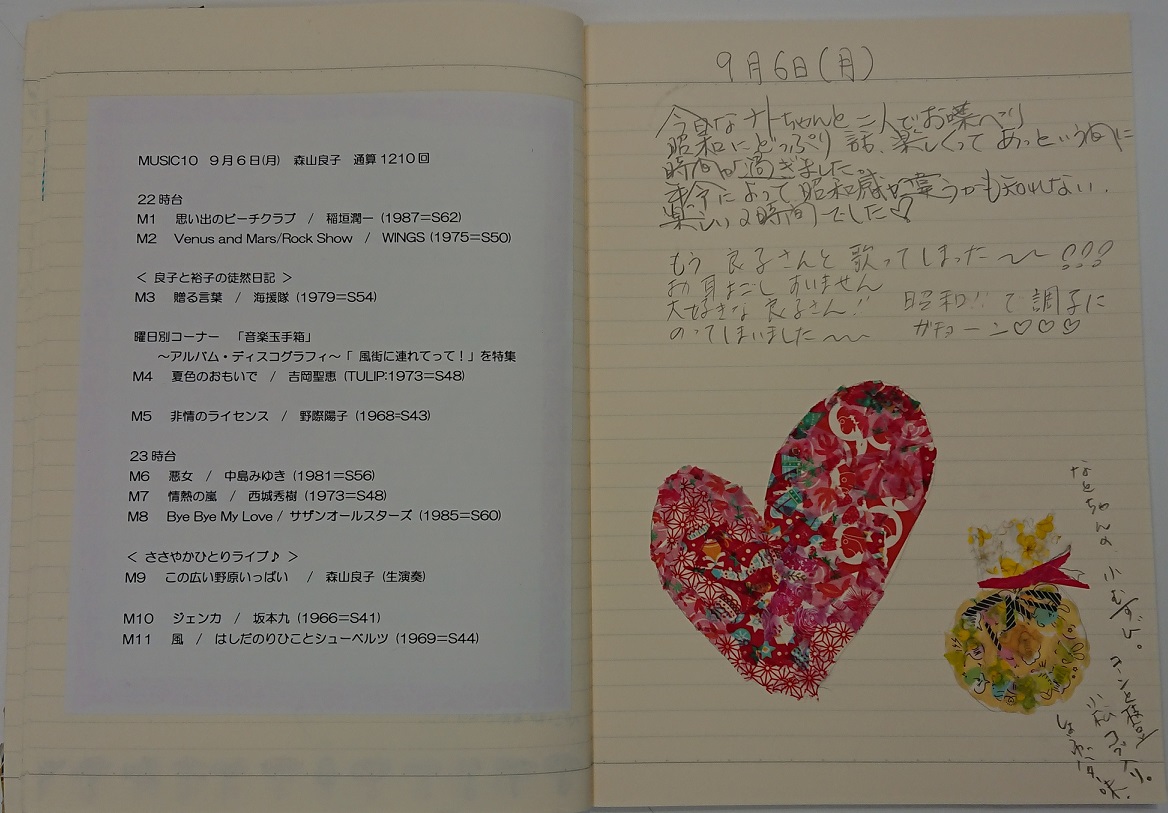 MUSIC10 9月6日(月) 森山良子 通算1210回
22時台
M1 思い出のビーチクラブ / 稲垣潤一 (1987=S62)
M2 Venus and Mars/Rock Show / WINGS (1975=S50)
< 良子と裕子の徒然日記 >
M3 贈る言葉 / 海援隊 (1979=S54)
曜日別コーナー 「音楽玉手箱」
～アルバム・ディスコグラフィ～「 風街に連れてって！」を特集
M4 夏色のおもいで / 吉岡聖恵 (TULIP:1973=S48)
M5 非情のライセンス / 野際陽子 (1968=S43)
23時台
M6 悪女 / 中島みゆき (1981=S56)
M7 情熱の嵐 / 西城秀樹 (1973=S48)
M8 Bye Bye My Love / サザンオールスターズ (1985=S60)
< ささやかひとりライブ♪ >
M9 この広い野原いっぱい / 森山良子 (生演奏)
M10 ジェンカ / 坂本九 (1966=S41)
M11 風 / はしだのりひことシューベルツ (1969=S44)
9月6日(月)
今日はナトちゃんと二人でお喋べり
昭和にどっぷり話、楽しくってあっという間に
時間が過ぎました。
年令によって昭和感が違うかも知れない.
楽しい2時間でした♡
もう 良子さんと 歌ってしまった〜〜!!!
お耳よごしすいません
大好きな良子さん!! 昭和!!で調子に
のってしまいました〜〜 ガチョーン♡♡♡
なとちゃんの 小むすび。
コーンと枝豆
小松コブ入り。
しょうゆバター味.